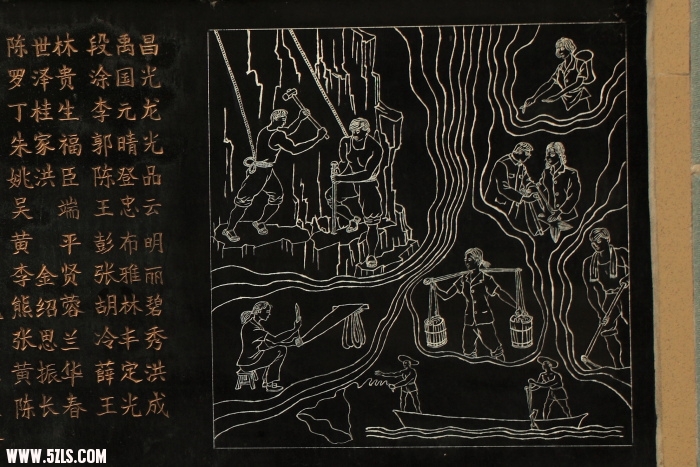 陈世林 段禹昌
罗泽贵 涂国光
丁桂生 李元龙
朱家福 郭晴光
姚洪臣 陈登品
吴端 王忠云
黄平 彭布明
李金贤 张雅丽
熊绍蓉 胡林碧
张思兰 冷丰秀
黄振华 薛定洪
陈长春 王光成
WWW.5ZLS.COM